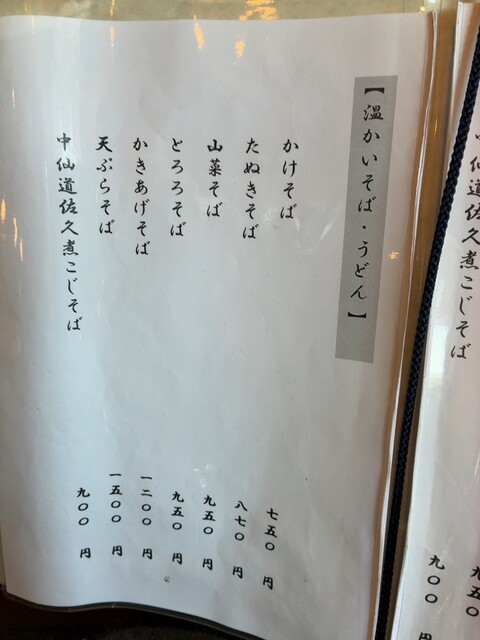 【温かいそば・うどん】
かけそば 七五〇円
たぬきそば 八七〇円
山菜そば 九五〇円
とろろそば 九五〇円
かきあげそば 一二〇〇円
天ぷらそば 一五〇〇円
中仙道佐久煮こじそば 九〇〇円
九五〇
中仙道佐久煮こじそば 九〇〇円